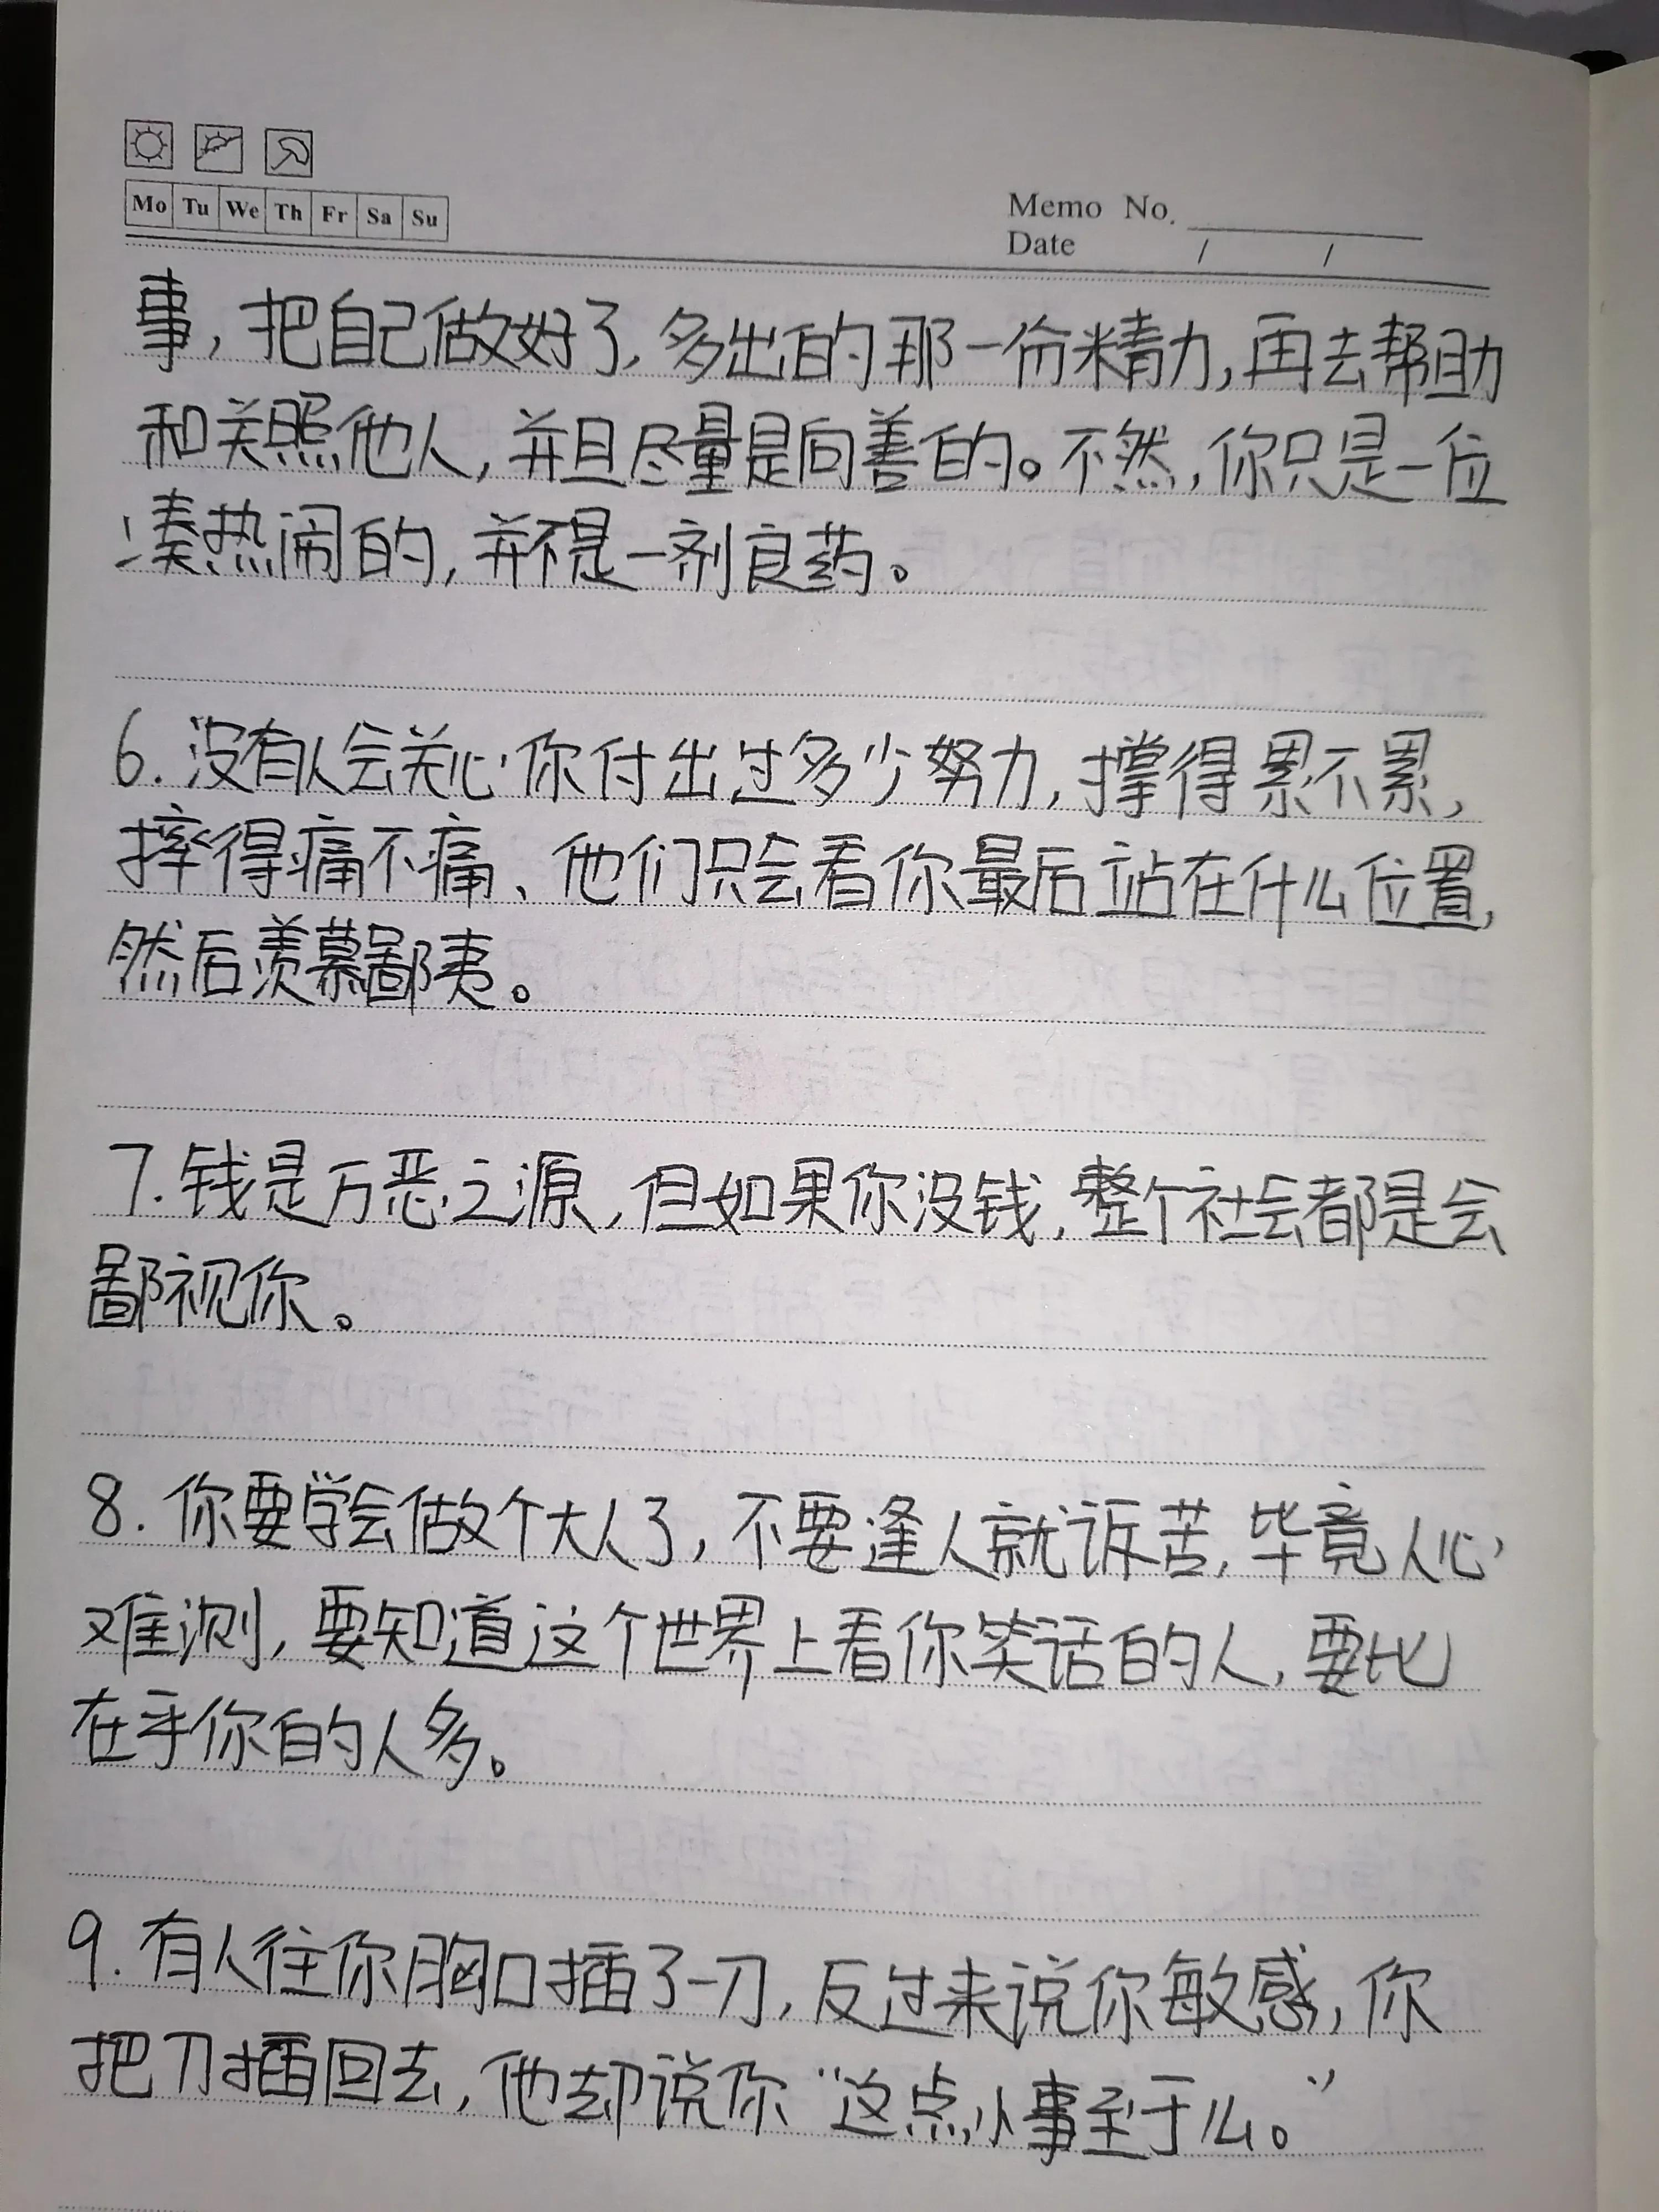 Mo Tu We Th Fr Sa Su
Memo No.
Date / /
事，把自己做好了，多出的那一份精力，再去帮助
和关照他人，并且尽量是向善的。不然，你只是一位
凑热闹的，并不是一剂良药。
6.没有人会关心你付出过多少努力，撑得累不累，
摔得痛不痛、他们只会看你最后站在什么位置，
然后羡慕鄙夷。
7.钱是万恶之源，但如果你没钱，整个社会都是会
鄙视你。
8.你要学会做个大人了，不要逢人就诉苦，毕竟人心
难测，要知道这个世界上看你笑话的人，要比
在乎你的人多。
9.有人往你胸口插了一刀，反过来说你敏感，你
把刀插回去，他却说你“这点小事至于么。”